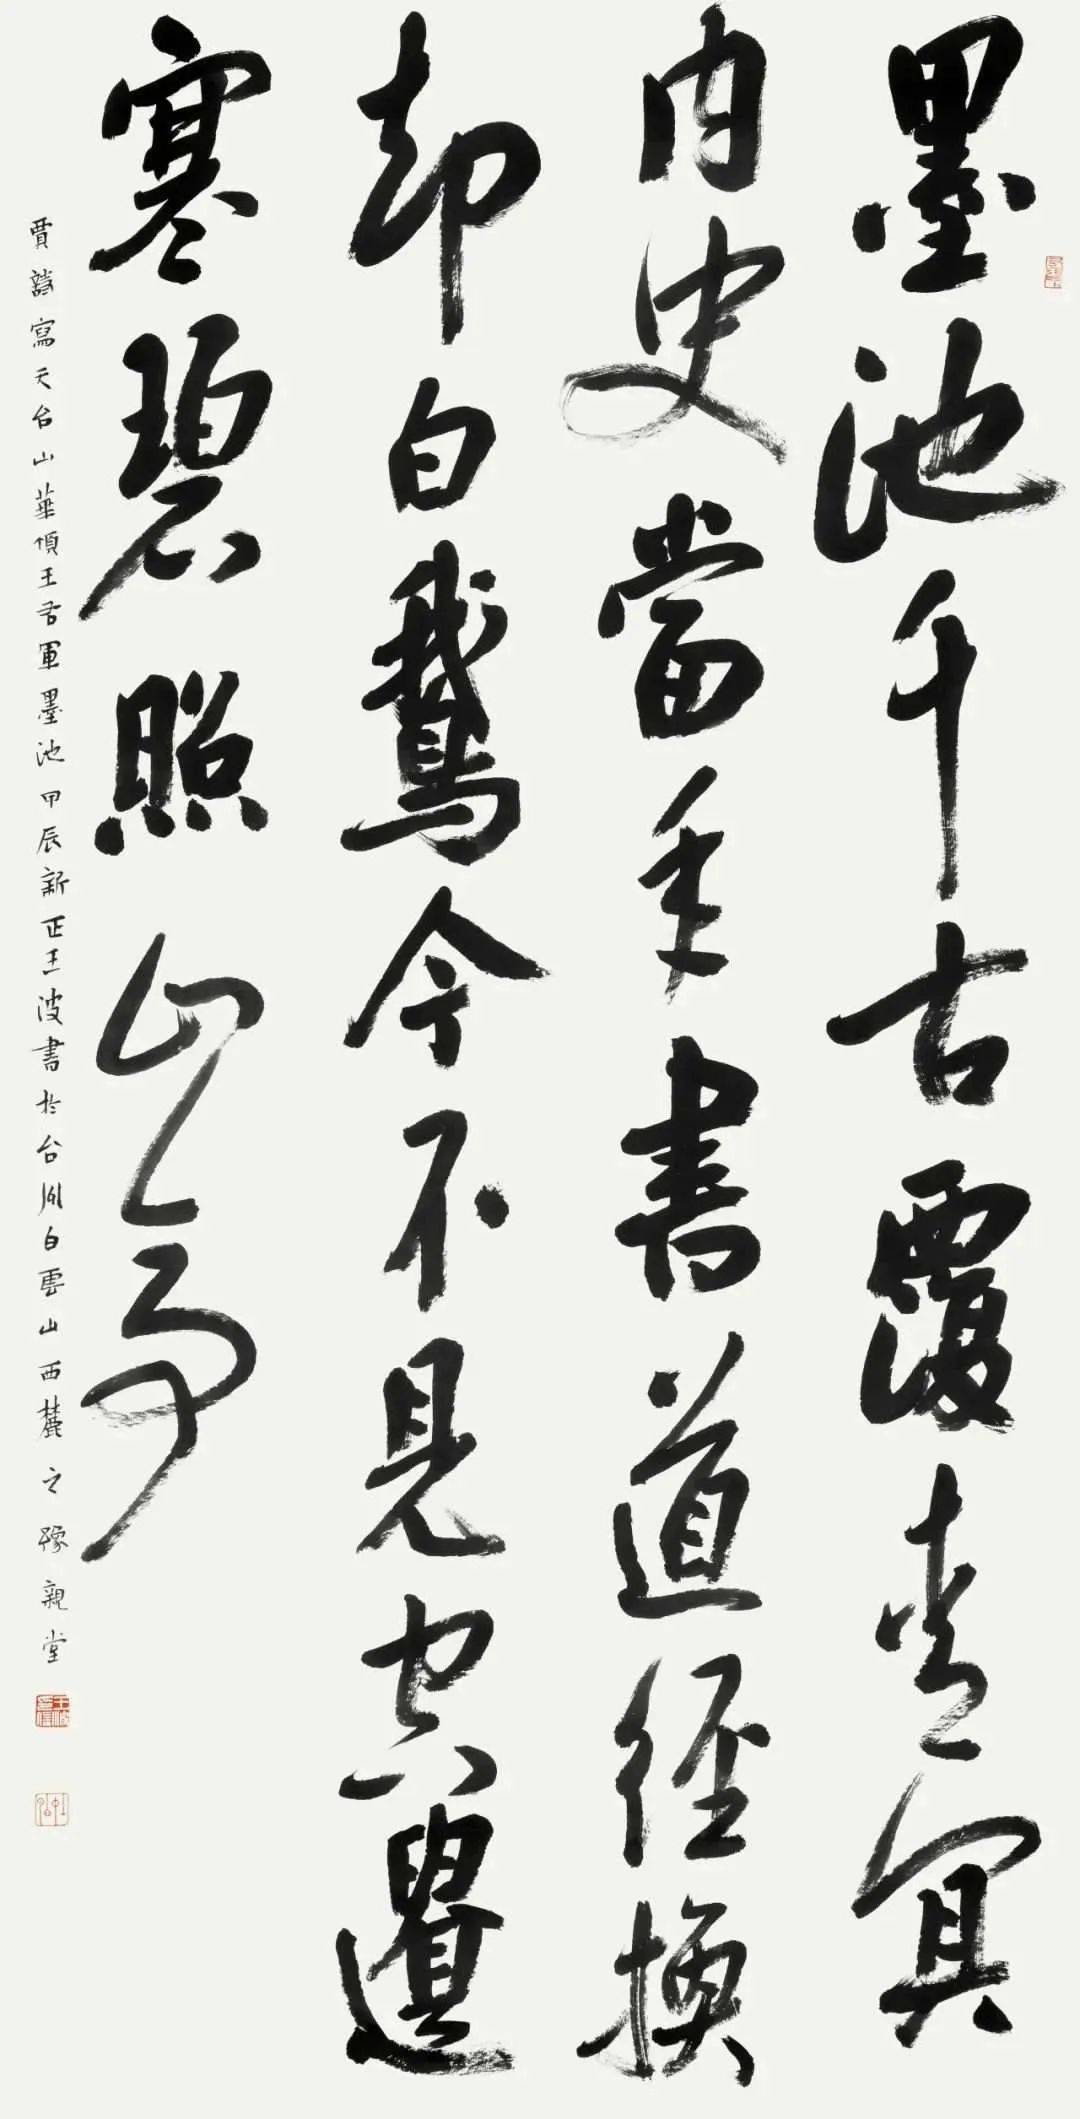 墨池千古覆青冥
内史當年書道經換
却白鵝今不見空遺
寒碧照山亭
賈寫天台山華頂王右軍墨池甲辰新正王波書於台州白雲山西麓之豫親堂